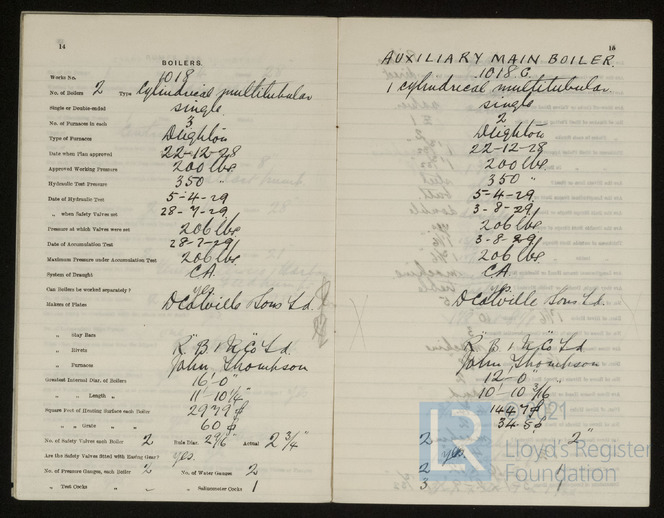 14
BOILERS.
Works No. 1018
No. of Boilers 2 Type Cylindrical multitubular
Single or Double-ended single
No. of Furnaces in each 3
Type of Furnaces Deighton
Date when Plan approved 22-12-28
Approved Working Pressure 200 lbs.
Hydraulic Test Pressure 350 "
Date of Hydraulic Test 5-4-29
" when Safety Valves set 28-7-29
Pressure at which Valves were set 206 lbs.
Date of Accumulation Test 28-7-29
Maximum Pressure under Accumulation Test 206 lbs.
System of Draught CA.
Can Boilers be worked separately? yes.
Makers of Plates D Colville & Sons Ld.
" Stay Bars
" Rivets R. B. & N. Co. Ld.
" Furnaces John Thompson
Greatest Internal Diar. of Boilers 16'-0"
" " Length "
Square Feet of Heating Surface each Boiler 2979
" " Grate " " 60
No. of Safety Valves each Boiler 2 Rule Diar. Actual 2 3/4"
Are the Safety Valves fitted with Easing Gear? yes.
No. of Pressure Gauges, each Boiler 2 No. of Water Gauges 2
" Test Cocks " " Salinometer Cocks 1
15
AUXILIARY MAIN BOILER.
1018 C.
1 cylindrical multitubular.
single
2
Deighton
22-12-28
200 lbs.
350 "
5-4-29
3-8-29
206 lbs.
3-8-29
206 lbs.
CA.
yes.
D Colville & Sons Ld.
R. B. & N. Co. Ld.
John Thompson
12'-0"
10'-10 3/16
1447
34.5
2 2"
yes
2 1
3 1
© 2021
LR
Lloyd's Register
Foundation